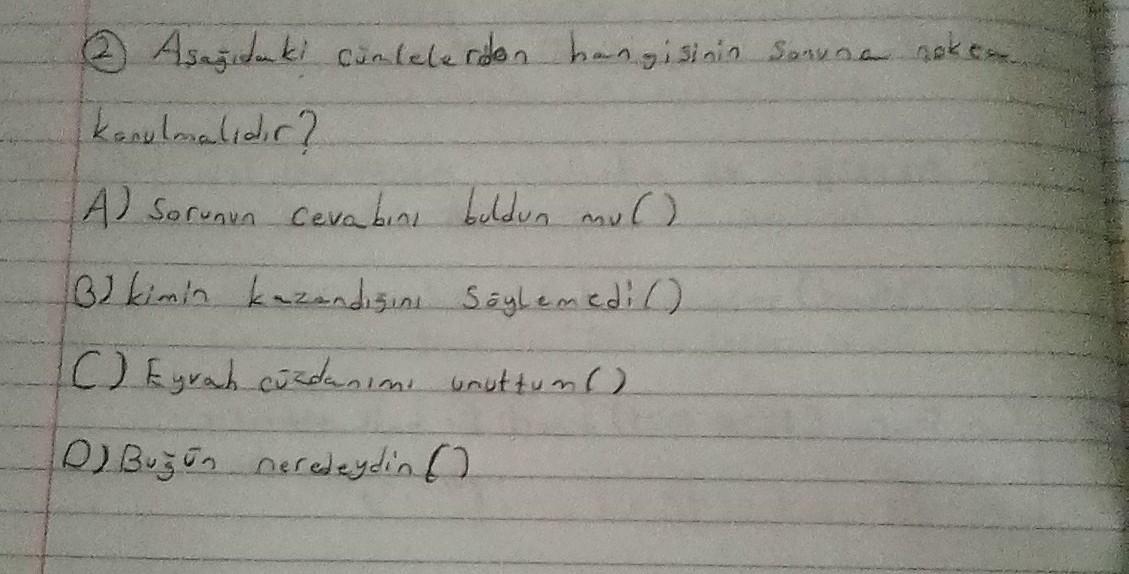 ② Aşağıdaki cümlelerden hangisinin sonuna nokta
konulmalıdır?
A) Sorunun cevabını buldun mu ()
B) kimin kazandığını söylemedi ()
C) Eyvah cüzdanımı unuttum ()
D) Bugün neredeydin ()